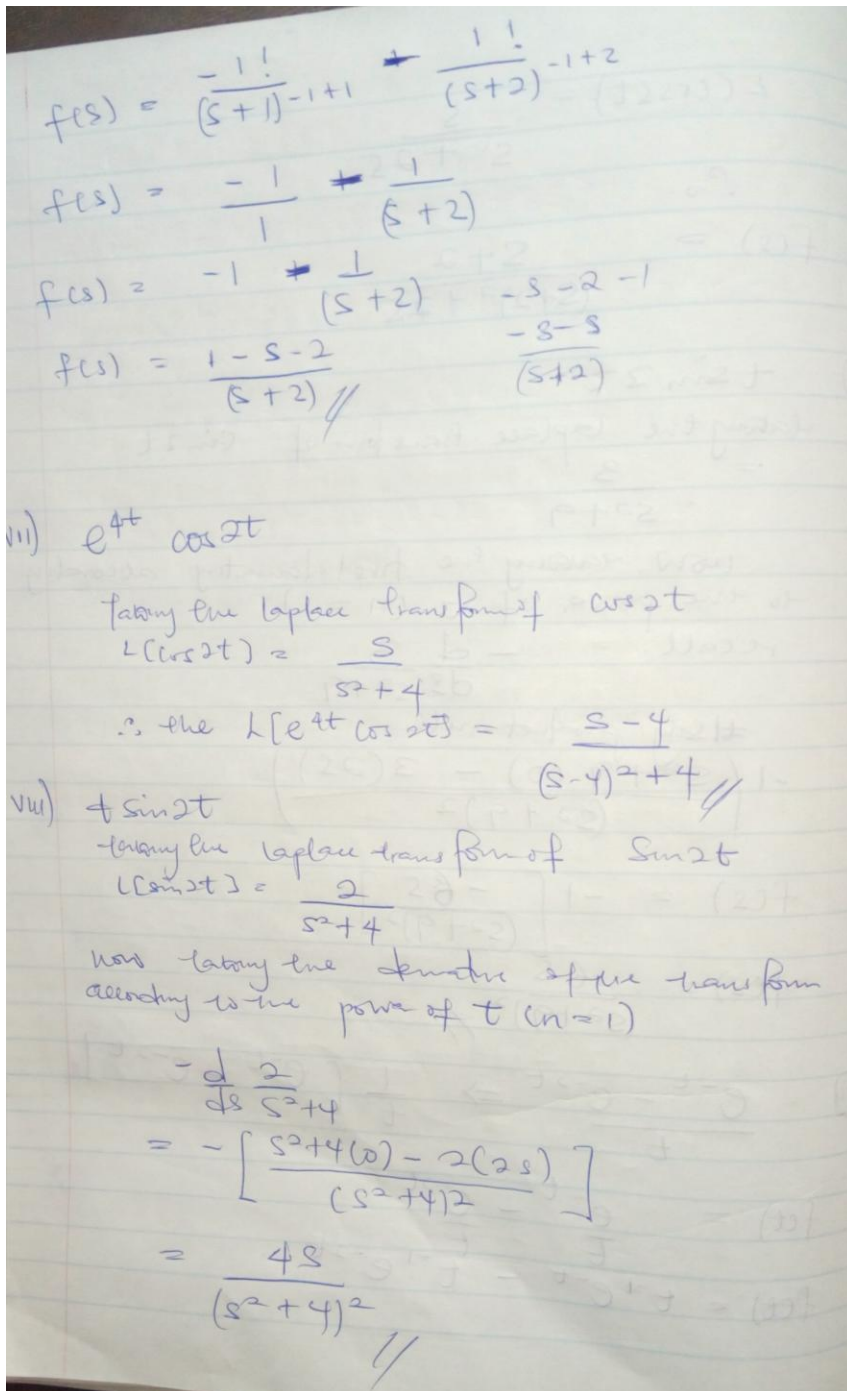 f(s) = -1!/(s+1)^-1+1 + 1!/(s+2)^-1+2
f(s) = -1/1 + 1/(s+2)
f(s) = -1 + 1/(s+2) -s-2-1
f(s) = 1-s-2/(s+2) // -s-s/(s+2)
vii) e^4t cos2t
Taking the laplace transform of cos2t
L(cos2t) = s/s²+4
∴ the L[e^4t cos2t] = s-4/(s-4)²+4 //
viii) t sin2t
taking the laplace transform of Sin2t
L[sin2t] = 2/s²+4
now taking the derivative of the transform
according to the power of t (n=1)
-d/ds 2/s²+4
= -[s²+4(0)-2(2s)/(s²+4)²]
= 4s/(s²+4)² //